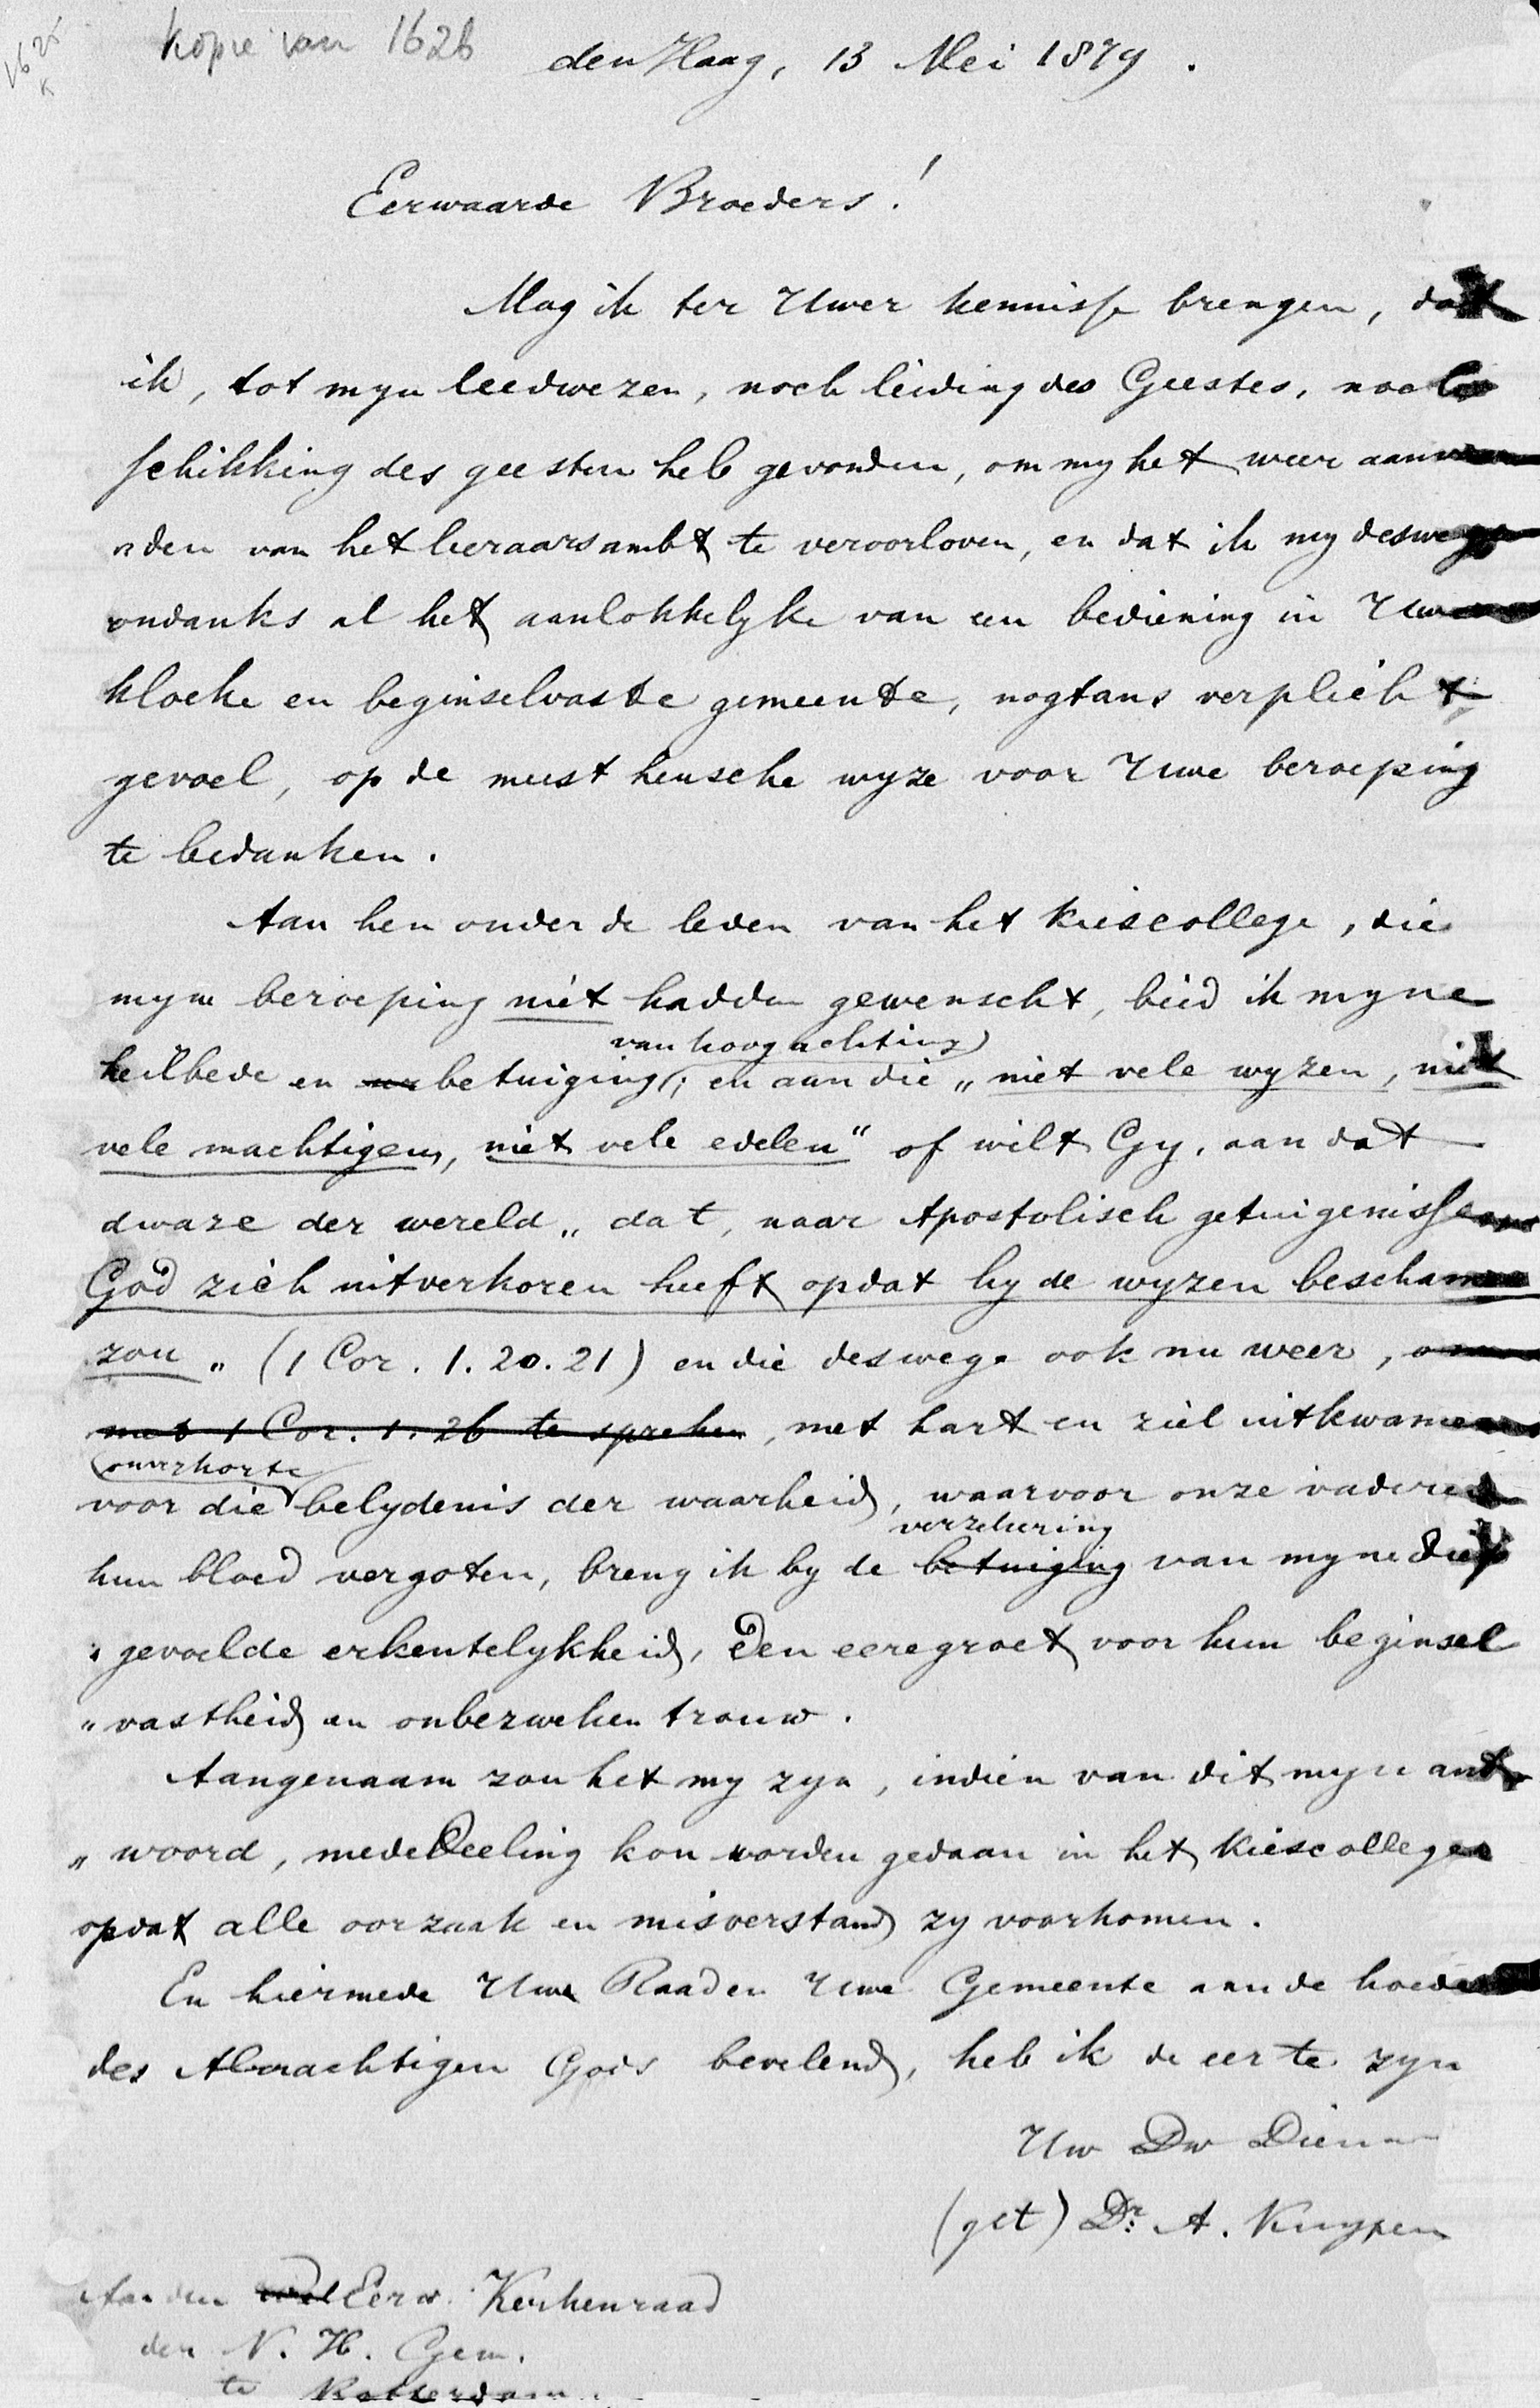 kopie van 1626
den Haag, 13 Mei 1879.
Eerwaarde Broeders!
Mag ik ter Uwer kennisse brengen, dat
ik, tot myn leedwezen, noch leiding des Geestes, noch
schikking des geesten heb gevonden, om my het weer aanvaar
"den van het leeraarsambt te veroorloven, en dat ik my deswege
ondanks al het aanlokkelyke van een bediening in Uwe
kloeke en beginselvaste gemeente, nogtans verplicht
gevoel, op de meest heusche wyze voor Uwe beroeping
te bedanken.
Aan hen onder de leden van het Kiescollege, die
myne beroeping niet hadden gewenscht, bied ik myne
van hoogachting
heilbede en betuiging, en aan die „niet vele wyzen, niet
vele machtigen, niet vele edelen" of wilt Gy, aan dat
dwaze der wereld „dat, naar Apostolisch getuigenisse
God zich uitverkoren heeft opdat hy de wyzen beschamen
zou" (1 Cor. 1. 20. 21) en die deswege ook nu weer, om
met 1 Cor. 1. 26 te spreken, met hart en ziel uitkwamen
onverkorte
voor die belydenis der waarheid, waarvoor onze vaderen
verzekering
hun bloed vergoten, breng ik by de betuiging van myne diep
"gevoelde erkentelykheid, den eeregroet voor hun beginsel
"vastheid en onbezweken trouw.
Aangenaam zou het my zyn, indien van dit myn ant
"woord, mededeeling kon worden gedaan in het Kiescollege
opdat alle oorzaak en misverstand zy voorkomen.
En hiermede Uwe Raad en Uwe Gemeente aan de hoede
des Almachtigen Gods bevelend, heb ik de eer te zyn
Uw Dw Dienaar
(get) Dr. A. Kuyper
Aan den Wel Eerw. Kerkenraad
der N. H. Gem.
te Rotterdam